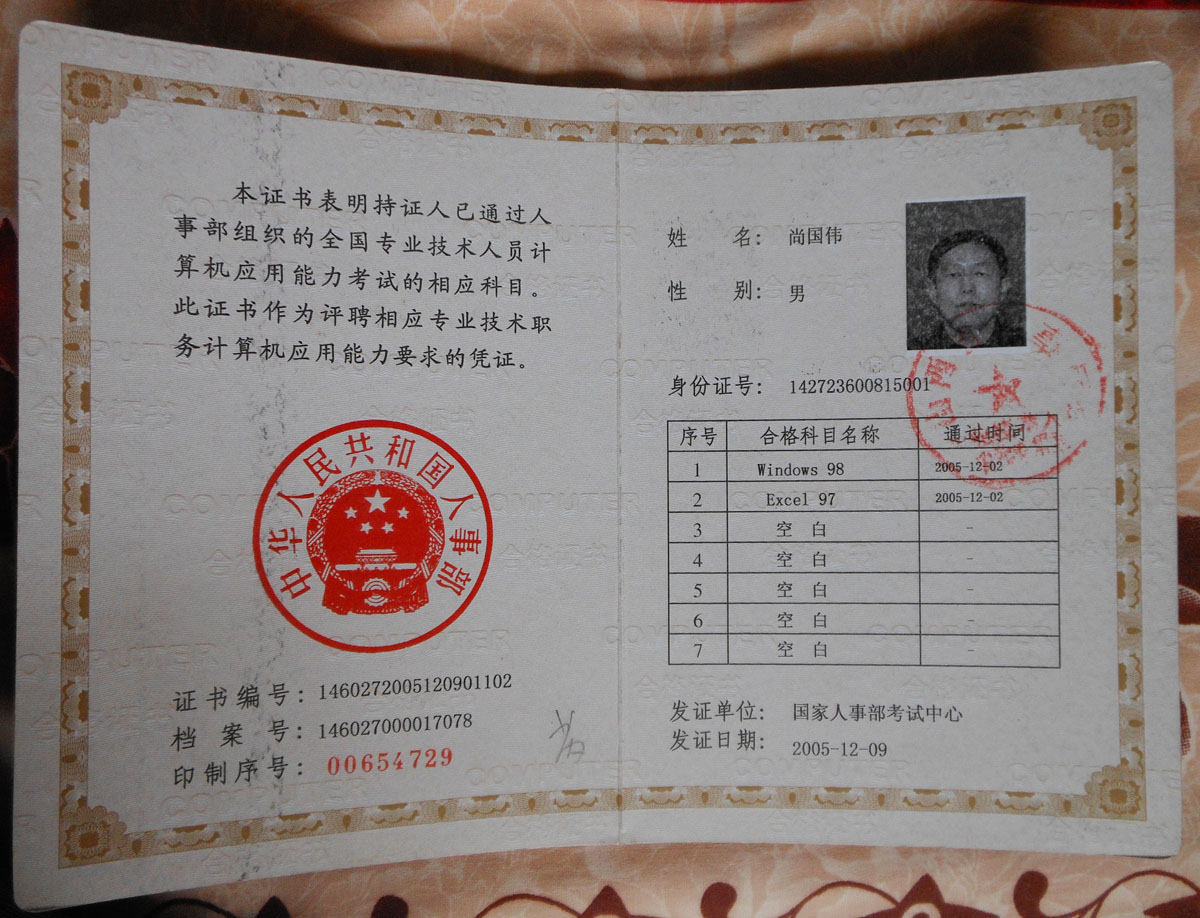 本证书表明持证人已通过人
事部组织的全国专业技术人员计
算机应用能力考试的相应科目。
此证书作为评聘相应专业技术职
务计算机应用能力要求的凭证。
中华人民共和国人事部
证书编号：1460272005120901102
档案号：146027000017078
印制序号：00654729
姓名：尚国伟
性别：男
身份证号：142723600815001
序号 合格科目名称 通过时间
1 Windows 98 2005-12-02
2 Excel 97 2005-12-02
3 空白 -
4 空白 -
5 空白 -
6 空白 -
7 空白 -
发证单位：国家人事部考试中心
发证日期：2005-12-09
COMPUTER
合格证书